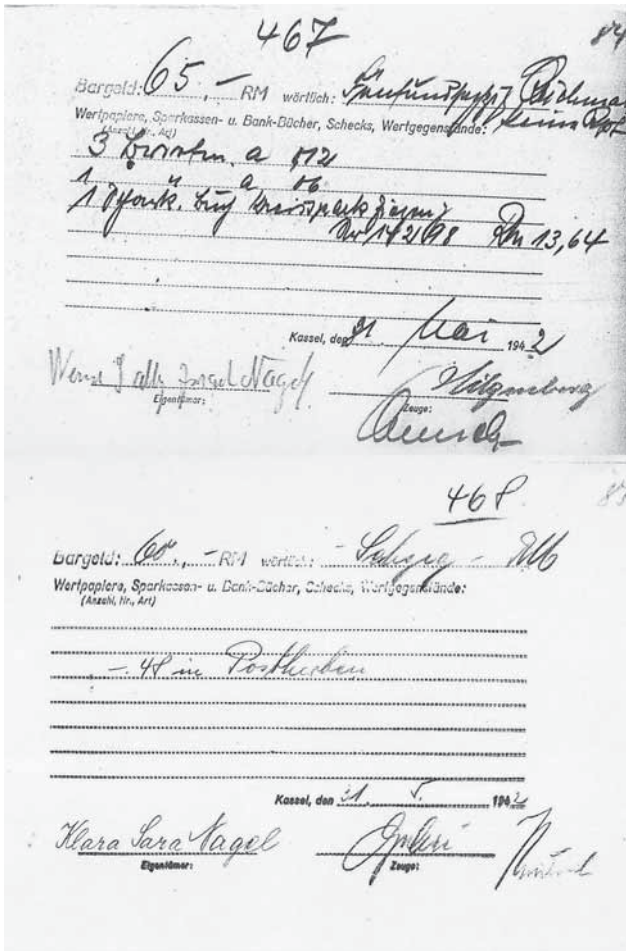 467
84
Bargeld: 65,- RM wörtlich: Fünfundsechzig Reichmark
Wertpapiere, Sparkassen- u. Bank-Bücher, Schecks, Wertgegenstände: keine Rpf
(Anzahl, Nr., Art)
3 Briefm. a 12
1 " a 06
1 Buch Kreisspark. Siegen
Nr 14 2198 Rm 13,64
Kassel, den 31 Mai 1942
Nagel Hilgenberg
Eigentümer: Zeuge:
468
Bargeld: 60.,- RM wörtlich: - Sechzig - RM
Wertpapiere, Sparkassen- u. Bank-Bücher, Schecks, Wertgegenstände:
(Anzahl, Nr., Art)
-.48 in
Kassel, den 31. 5. 1942
Klara Sara Nagel
Eigentümer: Zeuge: